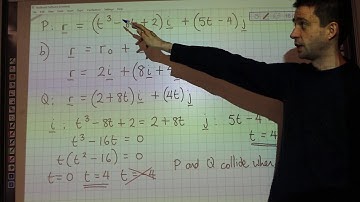 P: r = (t³ - t + 2) i + (5t - 4) j
b) r = r₀ +
r = 2i + (8i +
Q: r = (2 + 8t) i + (4t) j
i, t³ - 8t + 2 = 2 + 8t j: 5t - 4
t³ - 16t = 0 t = 4
t(t² - 16) = 0 P and Q collide when
t = 0 t = 4 t = -4